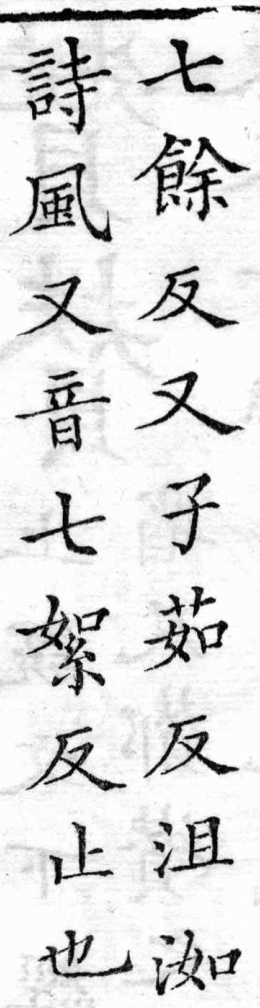 七餘反又子茹反沮洳
詩風又音七絮反止也